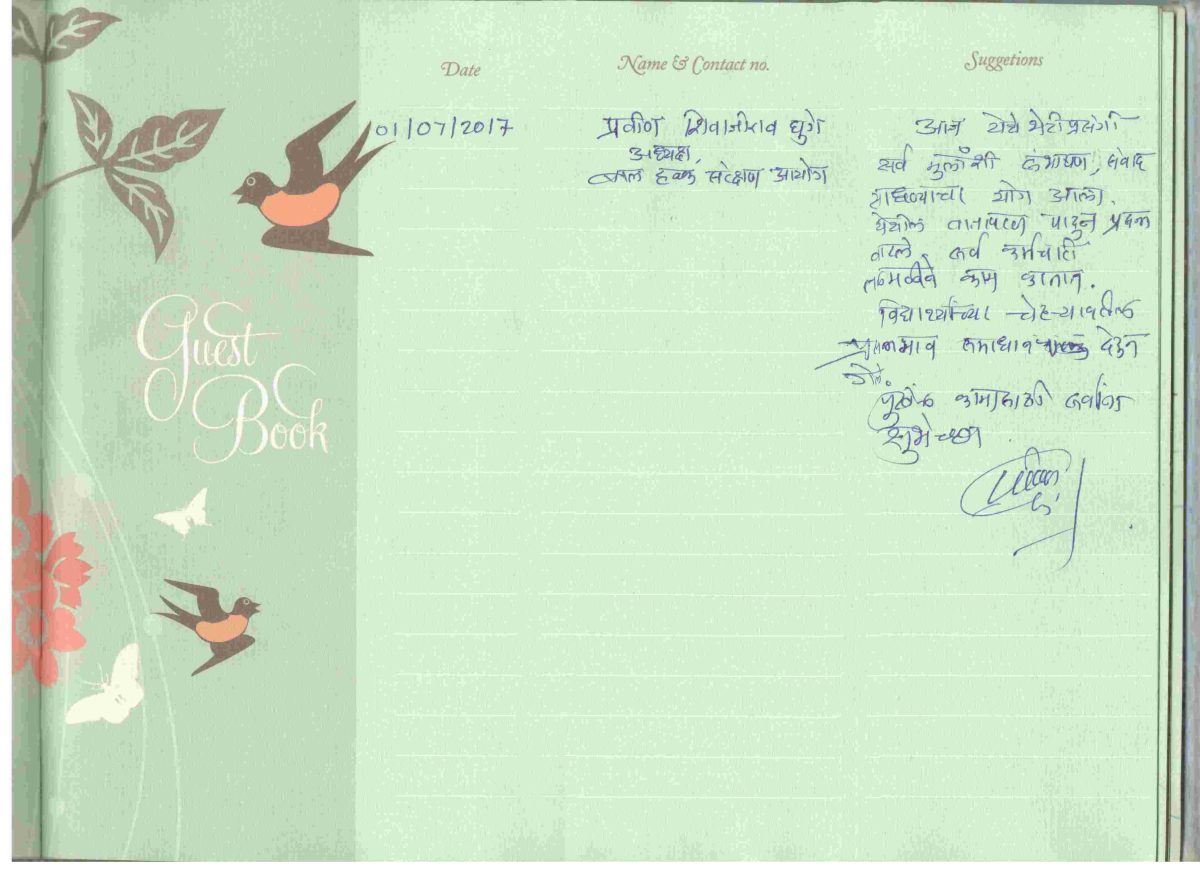 Date
Name & Contact no.
Suggetions
Guest
Book
01/07/2017
प्रवीण शिवाजीराव घुगे
अध्यक्ष,
बाल हक्क संरक्षण आयोग
आज येथे भेटीप्रसंगी
सर्व मुलांशी संभाषण, संवाद
साधण्याचा योग आला.
येथील वातावरण पाहून प्रसन्न
वाटले. सर्व कर्मचारी
तळमळीने काम करतात.
विद्यार्थ्यांच्या चेहऱ्यावरील
प्रसन्नभाव समाधान देऊन
गेले.
पुढील कामासाठी सर्वांना
शुभेच्छा